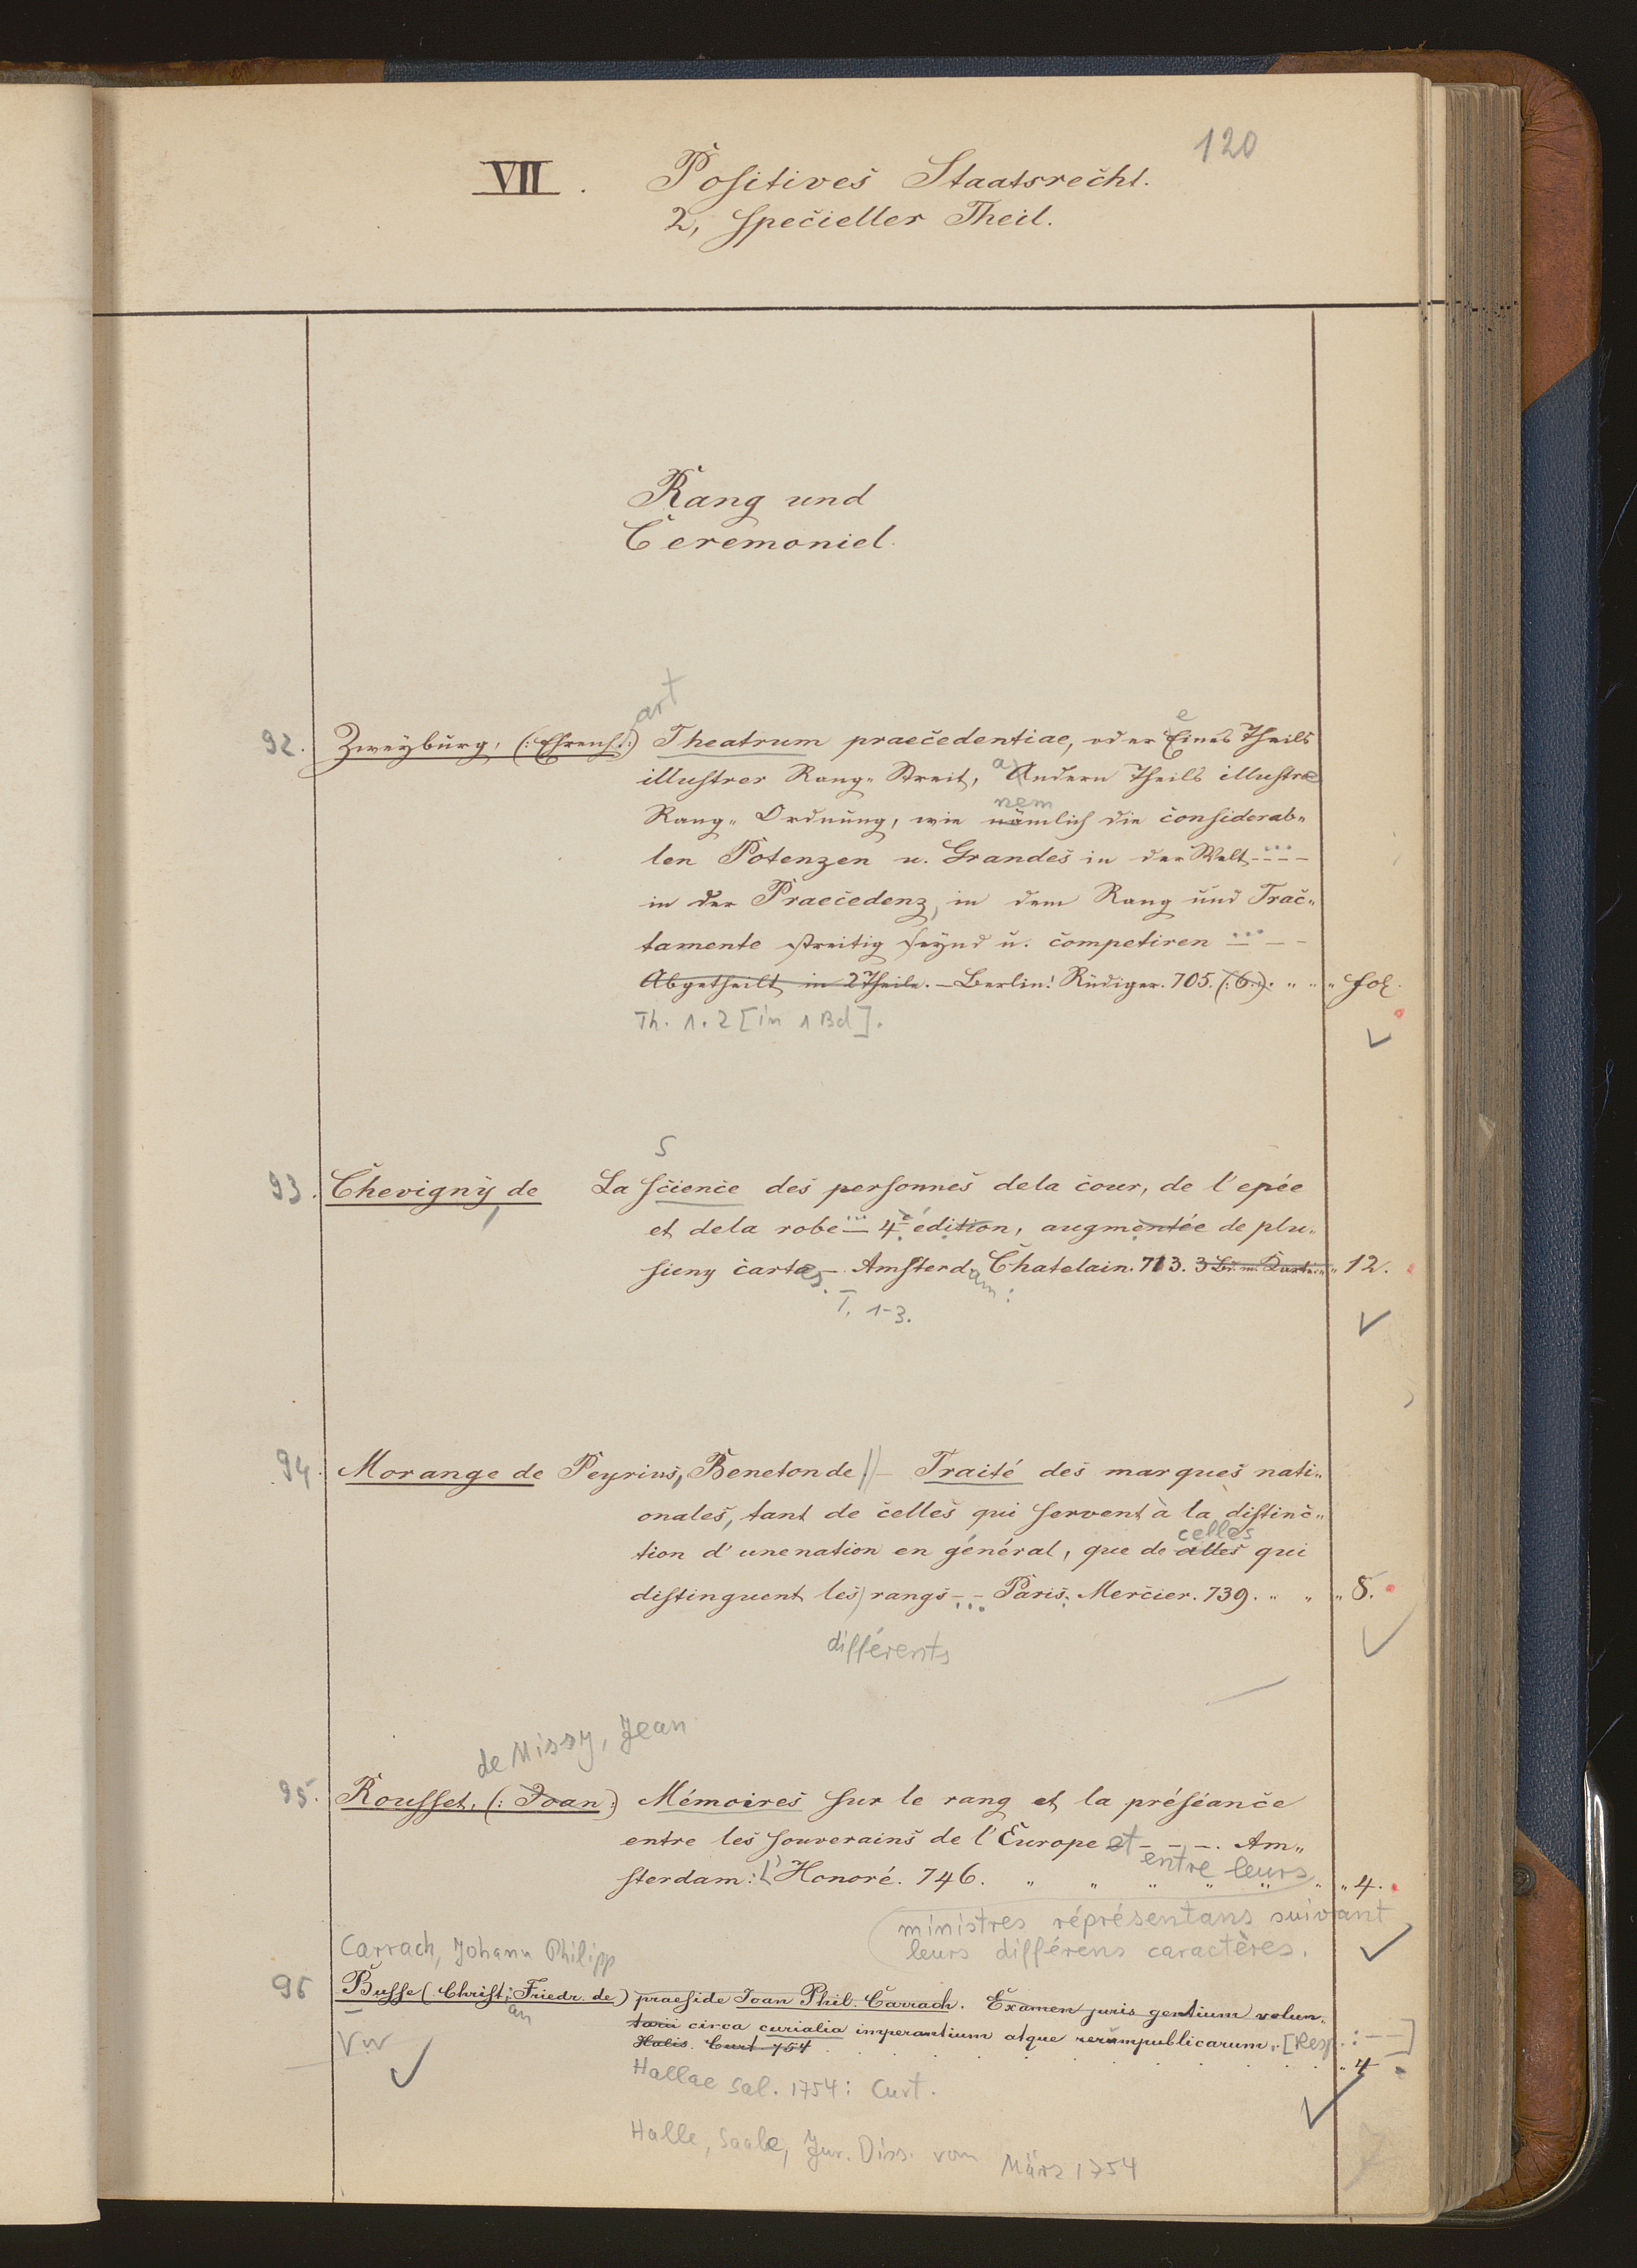 120
VII. Positives Staatsrecht.
2, specieller Theil.
Rang und
Ceremoniel.
art
92. Zweyburg, (:Ehrenh.:) Theatrum praecedentiae, oder Eines Theils
e
illustrer Rang-Streit, Andern Theils illustre
a
Rang-Ordnung, wie nämlich die considerab-
nem
len Potenzen u. Grandes in der Welt ...
in der Praecedenz, in dem Rang und Trac-
tamente streitig seynd u. competiren ...
Abgetheilt in 2 Theile. – Berlin: Rüdiger. 705. (:6.:). " " " fol.
Th. 1. 2 [in 1 Bd].
S
93. Chevigny, de La science des personnes dela cour, de l'epée
et dela robe ... 4e édition, augmentée de plu-
sieurs cartes. – Amsterdam: Chatelain. 713. " 12.
T. 1-3.
94. Morange de Peyrins, Beneton de // – Traité des marques nati-
onales, tant de celles qui servent à la distinc-
tion d'une nation en général, que de alles qui
celles
distinguent les rangs ... Paris. Mercier. 739. " " " 8.
différents
de Missy, Jean
95. Rousset, (:Joan:) Mémoires sur le rang et la préséance
entre les souverains de l'Europe et – – –. Am-
sterdam: L'Honoré. 746. " " " " " " " 4.
entre leurs
ministres réprésentans suivant
leurs différens caractères.
Carrach, Johann Philipp
96 Busse (Christian Friedr. de) praeside Joan Phil. Carrach. Examen juris gentium volun-
tarii circa curialia imperantium atque rerumpublicarum. [Resp.: – –]
Halis. Curt. 754 " 4
Vw
Hallae Sal. 1754: Curt.
Halle, Saale, Jur. Diss. vom März 1754